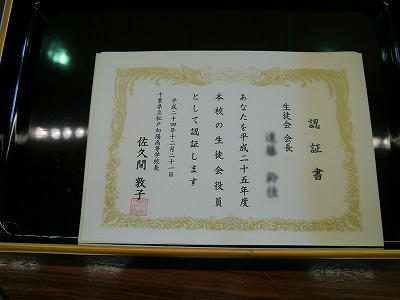 認証書
生徒会 会長
あなたを平成二十五年度
本校の生徒会役員
として認証します
平成二十四年十二月二十一日
千葉県立松戸向陽高等学校長
佐久間 敦子